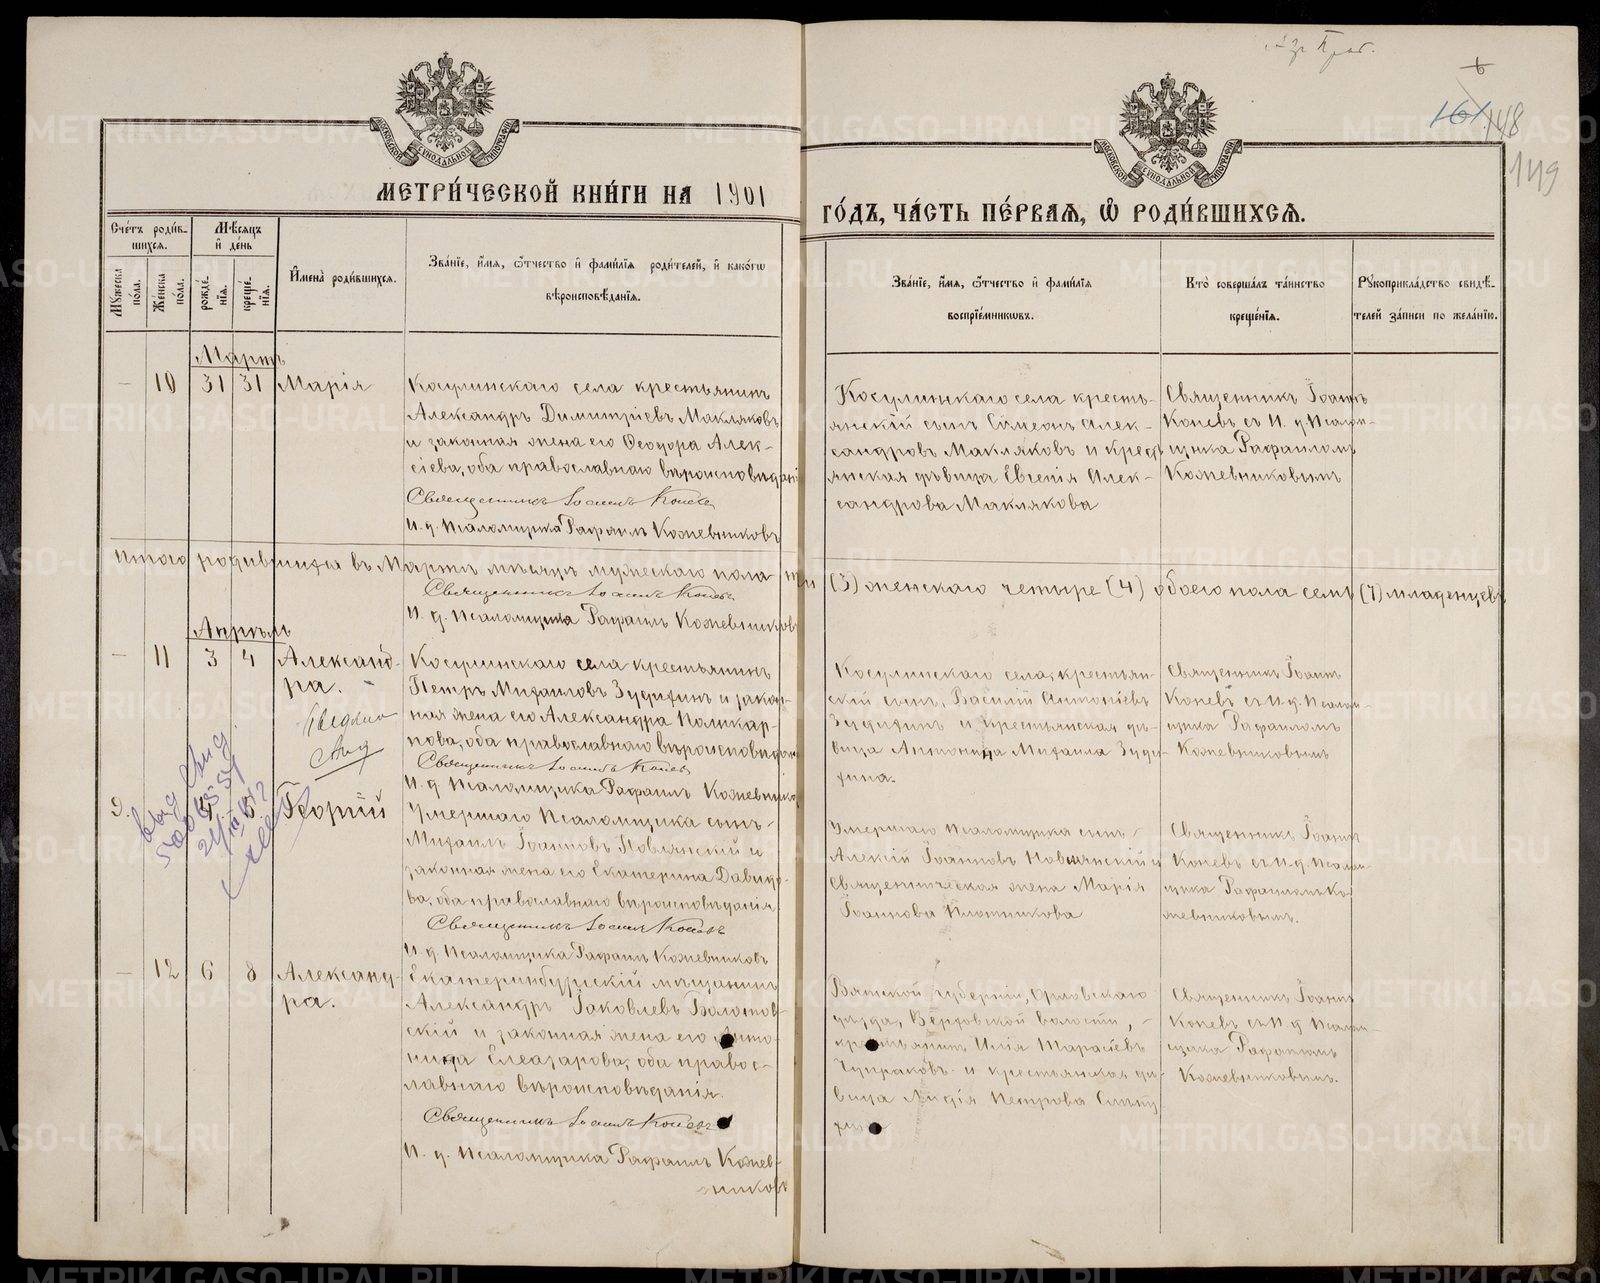 МЕТРИ́ЧЕСКОЙ КНИ́ГИ НА 1901
ГО́ДЪ, ЧА́СТЬ ПЕ́РВАѦ, Ѽ РОДИ́ВШИХСѦ.
148
149
Сче́тъ роди́в-
шихся.
Мѣ́сяцъ
и҆ де́нь
Мꙋ́жеска
по́ла.
Же́нска
по́ла.
рожде́-
нїѧ.
креще́-
нїѧ.
И҆мена̀ роди́вшихся.
Зва́нїе, и҆́мя, ѻ҆́тчество и҆ фами́лїѧ роди́телей, и҆ како́гѡ
вѣроисповѣ́данїѧ.
Зва́нїе, и҆́мя, ѻ҆́тчество и҆ фами́лїѧ
воспрїе́мниковъ.
Кто̀ соверша́лъ та́инство
креще́нїѧ.
Рꙋкоприкла́дство свидѣ́-
телей за́писи по жела́нїю.
Мартъ
— 10 31 31 Марія
Косулинскаго села крестьянинъ
Александръ Димитріевъ Макляковъ
и законная жена его Ѳеодора Алек-
сіева, оба православнаго вѣроисповѣдані
Священникъ Іоаннъ Коневъ
И. д. Псаломщика Рафаилъ Кожевниковъ
Косулинскаго села кресть-
янскій сынъ Сѵмеонъ Алек-
сандровъ Макляковъ и крест
янская дѣвица Евгенія Алек-
сандрова Маклякова
Священникъ Іоаннъ
Коневъ съ И. д. Псалом-
щика Рафаиломъ
Кожевниковымъ
Итого родившихся въ Мартѣ мѣсяцѣ мужескаго пола три (3) женскаго четыре (4) обоего пола семь (7) младенцевъ
Священникъ Іоаннъ Коневъ
И. д. Псаломщика Рафаилъ Кожевниковъ
Апрѣль
— 11 3 4 Александ-
ра.
Косулинскаго села крестьянинъ
Петръ Михаиловъ Зудихинъ и закон-
ная жена его Александра Поликар-
пова, оба православнаго вѣроисповѣдан
Священникъ Іоаннъ Коневъ
И. д. Псаломщика Рафаилъ Кожевников
Косулинскаго села, крестьян-
скій сынъ, Василій Антоніевъ
Зудихинъ и крестьянская дѣ-
вица Антонина Михаила Зуди-
хина.
Священникъ Іоаннъ
Коневъ съ И. д. Псалом-
щика Рафаиломъ
Кожевниковымъ
9. Георгій
Умершаго Псаломщика сынъ-
Михаилъ Іоанновъ Новлянскій и
законная жена его Екатерина Давидо-
ва, оба православнаго вѣроисповѣданія.
Священникъ Іоаннъ Коневъ
И. д. Псаломщика Рафаилъ Кожевниковъ
Умершаго Псаломщика сынъ-
Алексій Іоанновъ Новлянскій и
Священническая жена Марія
Іоаннова Плотникова
Священникъ Іоаннъ
Коневъ съ И. д. Псалом-
щика Рафаиломъ Ко-
жевниковымъ.
— 12 6 8 Александ-
ра.
Екатеринбургскій мѣщанинъ
Александръ Іаковлевъ Болотов-
скій и законная жена его Анто-
нида Елеазарова, оба правос-
лавнаго вѣроисповѣданія.
Священникъ Іоаннъ Коневъ
И. д. Псаломщика Рафаилъ Кожев-
никовъ
Вятской губерніи, Орловскаго
уѣзда, Верховской волости, -
крестьянинъ Илія Тарасіевъ
Чупраковъ и крестьянская дѣ-
вица Лидія Петрова
Священникъ Іоаннъ
Коневъ съ И. д. Псалом-
щика Рафаиломъ
Кожевниковымъ.